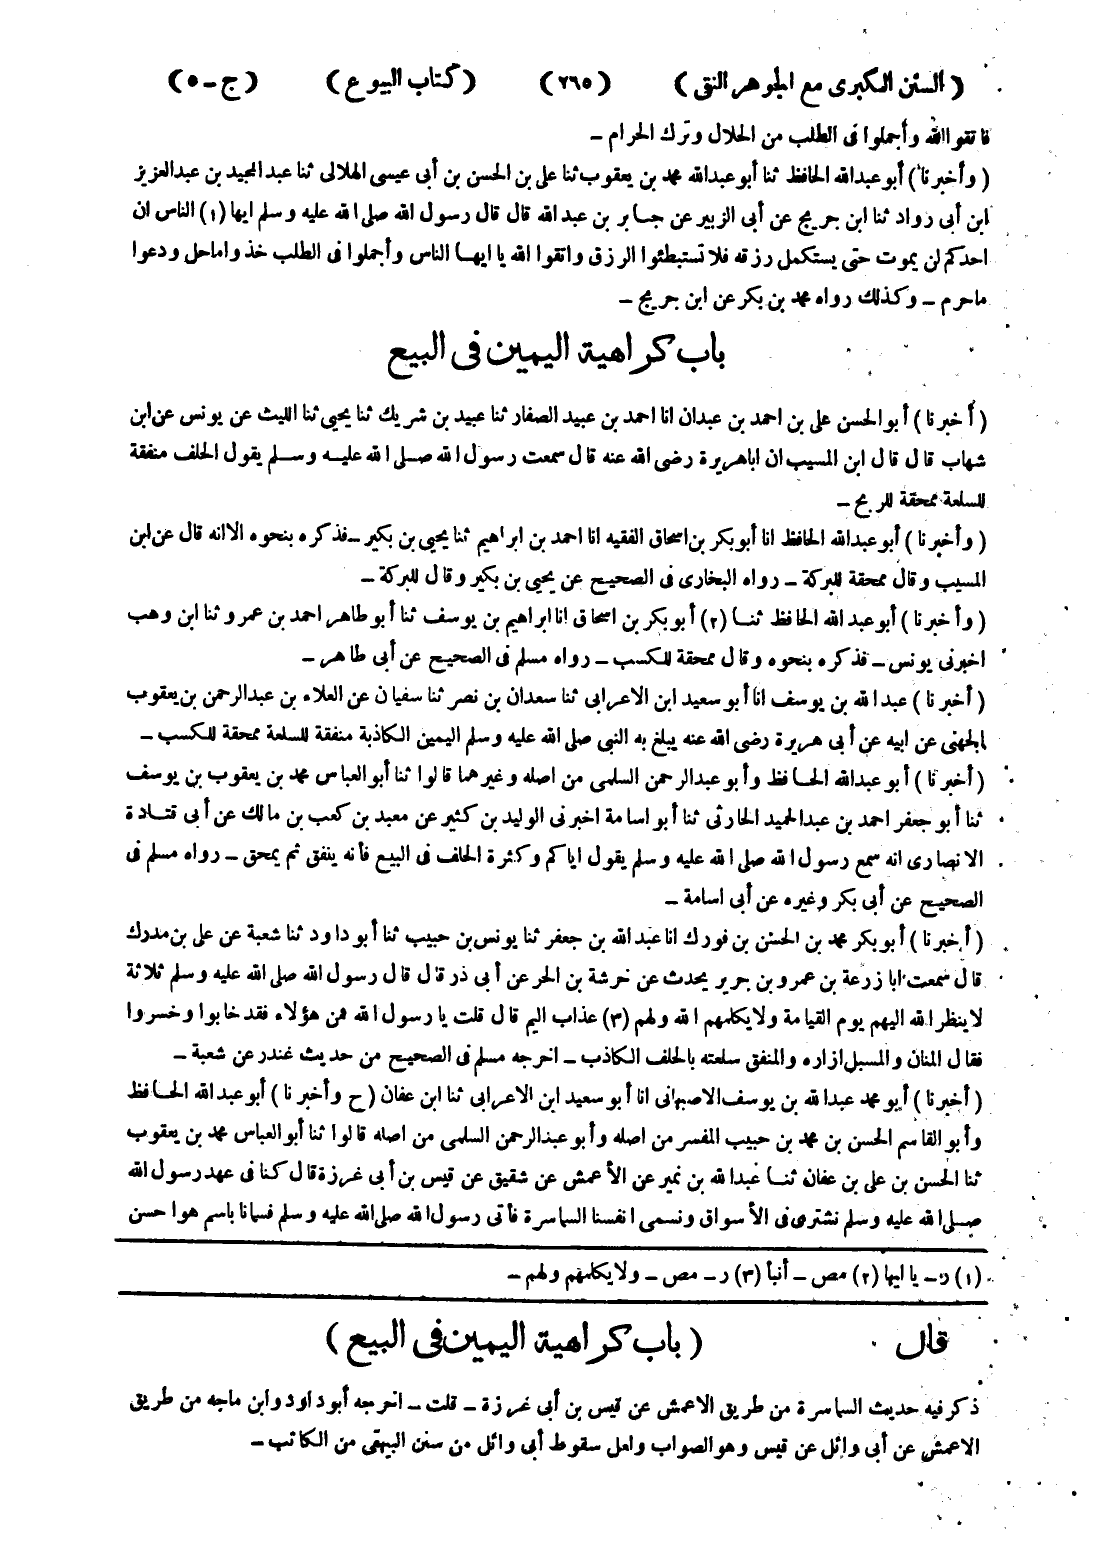 ( السنن الكبرى مع الجوهر النقى ) ( ٢٦٥ ) ( كتاب البيوع ) ( ج - ٥ )
فاتقوا الله وأجملوا فى الطلب من الحلال وترك الحرام -
( وأخبرنا ) أبو عبدالله الحافظ ثنا أبو عبدالله محمد بن يعقوب ثنا على بن الحسن بن أبى عيسى الهلالى ثنا عبد المجيد بن عبدالعزيز
ابن أبى رواد ثنا ابن جريج عن أبى الزبير عن جابر بن عبد الله قال قال رسول الله صلى الله عليه وسلم ايها (١) الناس ان
احدكم لن يموت حتى يستكمل رزقه فلا تستبطئوا الرزق واتقوا الله يا ايها الناس وأجملوا فى الطلب خذوا ماحل ودعوا
ماحرم - وكذلك رواه محمد بن بكر عن ابن جريج -
باب كراهية اليمين فى البيع
( أخبرنا ) أبو الحسن على بن احمد بن عبدان انا احمد بن عبيد الصفار ثنا عبيد بن شريك ثنا يحيى ثنا الليث عن يونس عن ابن
شهاب قال قال ابن المسيب ان اباهريرة رضى الله عنه قال سمعت رسول الله صلى الله عليه وسلم يقول الحلف منفقة
للسلعة ممحقة للربح -
( وأخبرنا ) أبو عبدالله الحافظ انا أبو بكر بن اسحاق الفقيه انا احمد بن ابراهيم ثنا يحيى بن بكير - فذكره بنحوه الا انه قال عن ابن
المسيب وقال ممحقة للبركة - رواه البخارى فى الصحيح عن يحيى بن بكير وقال للبركة -
( وأخبرنا ) أبو عبد الله الحافظ ثنا (٢) أبو بكر بن اسحاق انا ابراهيم بن يوسف ثنا أبو طاهر احمد بن عمرو ثنا ابن وهب
اخبرنى يونس - فذكره بنحوه وقال ممحقة للكسب - رواه مسلم فى الصحيح عن أبى طاهر -
( أخبرنا ) عبد الله بن يوسف انا أبو سعيد ابن الاعرابى ثنا سعدان بن نصر ثنا سفيان عن العلاء بن عبدالرحمن بن يعقوب
الجهنى عن ابيه عن أبى هريرة رضى الله عنه يبلغ به النبى صلى الله عليه وسلم اليمين الكاذبة منفقة للسلعة ممحقة للكسب -
( أخبرنا ) أبو عبدالله الحافظ وأبو عبدالرحمن السلمى من اصله وغيرهما قالوا ثنا أبو العباس محمد بن يعقوب بن يوسف
ثنا أبو جعفر احمد بن عبد الحميد الحارثى ثنا أبو اسامة اخبرنى الوليد بن كثير عن معبد بن كعب بن مالك عن أبى قتادة
الانصارى انه سمع رسول الله صلى الله عليه وسلم يقول اياكم وكثرة الحلف فى البيع فأنه ينفق ثم يمحق - رواه مسلم فى
الصحيح عن أبى بكر وغيره عن أبى اسامة -
( أخبرنا ) أبو بكر محمد بن الحسن بن فورك انا عبد الله بن جعفر ثنا يونس بن حبيب ثنا أبو داود ثنا شعبة عن على بن مدرك
قال سمعت ابا زرعة بن عمرو بن جرير يحدث عن خرشة بن الحر عن أبى ذر قال قال رسول الله صلى الله عليه وسلم ثلاثة
لا ينظر الله اليهم يوم القيامة ولا يكلمهم الله ولهم (٣) عذاب اليم قال قلت يا رسول الله فمن هؤلاء فقد خابوا وخسروا
فقال المنان والمسبل ازاره والمنفق سلعته بالحلف الكاذب - اخرجه مسلم فى الصحيح من حديث غندر عن شعبة -
( أخبرنا ) أبو محمد عبدالله بن يوسف الاصبهانى انا أبو سعيد ابن الاعرابى ثنا ابن عفان ( ح وأخبرنا ) أبو عبد الله الحافظ
وأبو القاسم الحسن بن محمد بن حبيب المفسر من اصله وأبو عبدالرحمن السلمى من اصله قالوا ثنا أبو العباس محمد بن يعقوب
ثنا الحسن بن على بن عفان ثنا عبدالله بن نمير عن الأعمش عن شقيق عن قيس بن أبى غرزة قال كنا فى عهد رسول الله
صلى الله عليه وسلم نشترى فى الأسواق ونسمى انفسنا السماسرة فأتى رسول الله صلى الله عليه وسلم فسمانا باسم هو احسن
(١) ر - يا ايها (٢) مص - أنبأ (٣) ر - مص - ولا يكلمهم ولهم -
قال ( باب كراهية اليمين فى البيع )
ذكر فيه حديث السماسرة من طريق الاعمش عن قيس بن أبى غرزة - قلت - اخرجه أبوداود وابن ماجه من طريق
الاعمش عن أبى وائل عن قيس وهو الصواب ولعل سقوط أبى وائل من سنن البيهقى من الكاتب -